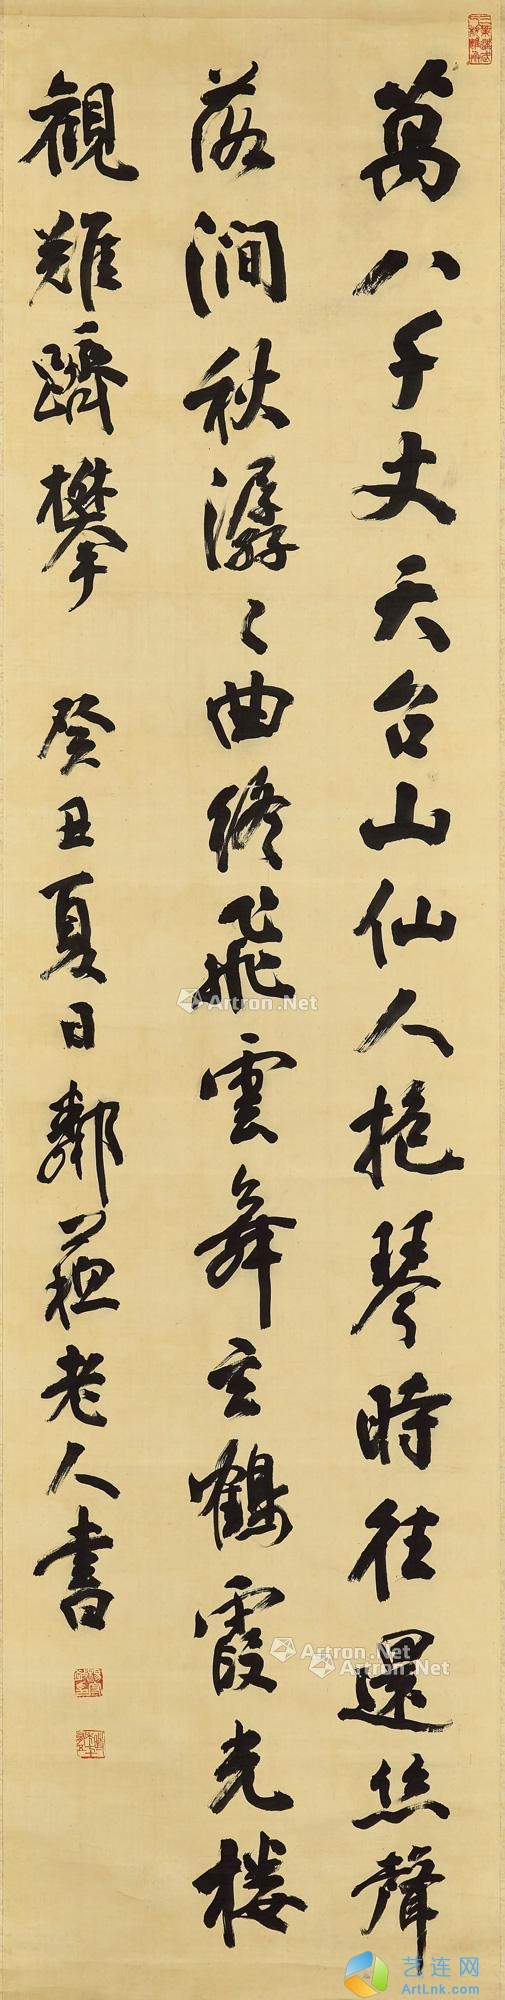 萬八千丈天台山仙人抱琴時往還絲聲
落澗秋潺〻曲終飛雲舞玄鶴霞光楼
觀難躋攀 癸丑夏日鄰蘇老人書
Artron.Net
Artron.Net
Artron.Net
艺连网
ArtLnk.com